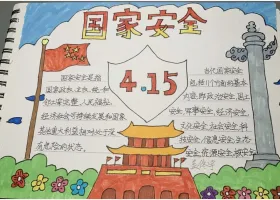 国家安全
4.15
国家安全是指
国家政权、主权、统一和
领土完整、人民福祉、
经济社会可持续发展和国家
其他重大利益相对处于没
有危险的状态
当代国家安全
包括11个方面的基本
内容,即政治安全、国土
安全、军事安全、经济安全、
文化安全、社会安全、科
技安全、信息安全、生态
安全、资源安全、核安全